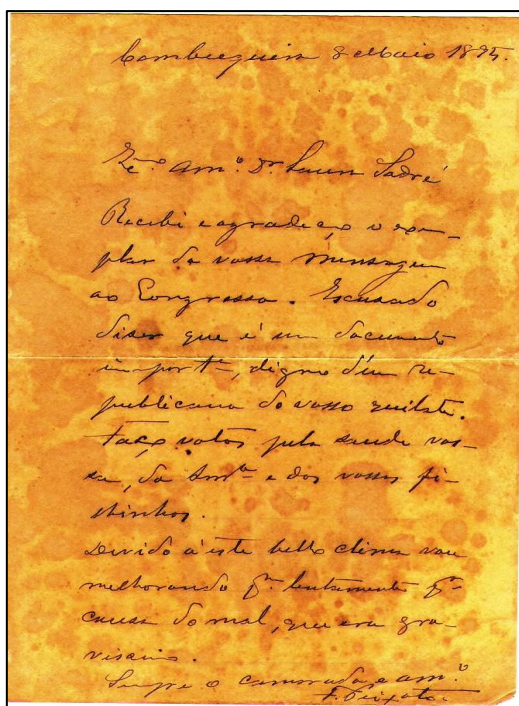 Cambuquira 8 Maio 1895.
Ex.mo am.o Dr. Lauro Sodré
Recebi e agradeço o exem-
plar da vossa mensagem
ao Congresso. Escusado
diser que é um documento
import.te, digno d'um re-
publicano do vosso quilate.
Faço votos pela saude vos-
sa, da Snr.a e dos vossos fi-
lhinhos.
Devido a este bello clima vou
melhorando q.m lentamente p.r
causa do mal, que era gra-
vissimo.
Sempre o camarada e am.o
F. Peixoto